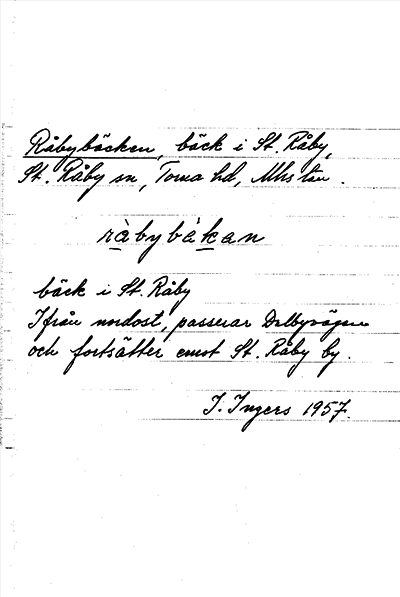 Råbybäcken, bäck i St. Råby,
St. Råby sn, Torna hd, Mhs län.
ràbybä̀kan
bäck i St. Råby
Ifrån nordost, passerar Dalbyvägen
och fortsätter emot St. Råby by.
I. Ingers 1957.